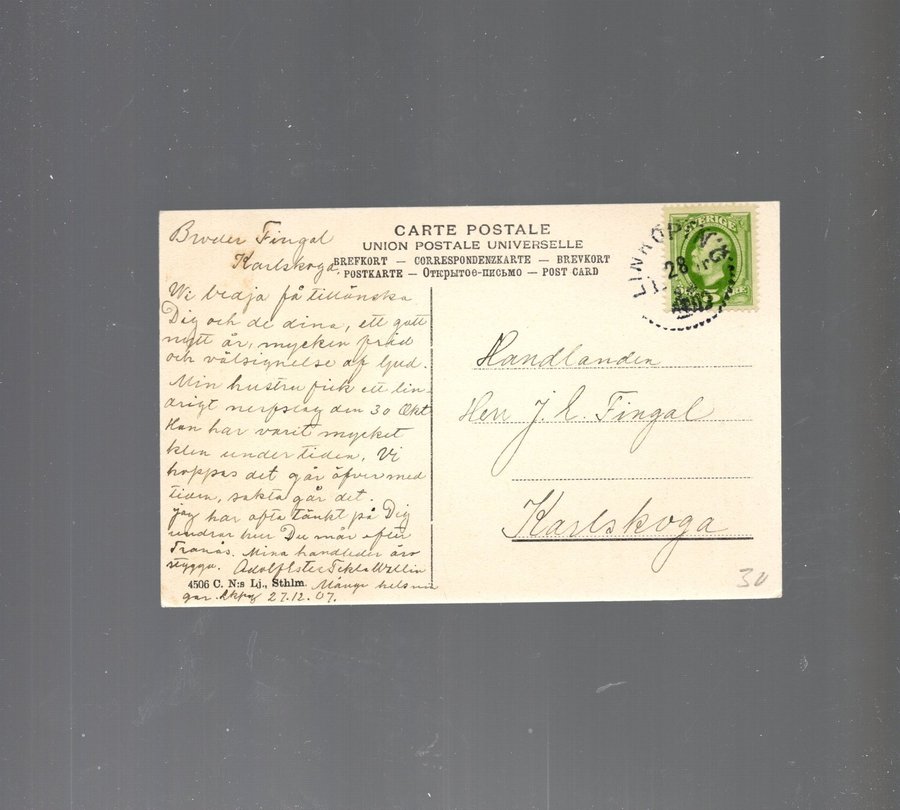 CARTE POSTALE
UNION POSTALE UNIVERSELLE
BREFKORT — CORRESPONDENZKARTE — BREVKORT
POSTKARTE — Открытое-письмо — POST CARD
Broder Fingal
Karlskoga.
Vi bedja få tillönska
Dig och de dina, ett gott
nytt år, mycken frid
och välsignelse af Gud.
Min hustru fick ett lin-
drigt nerfslag den 30 Okt
Hon har varit mycket
klen under tiden. Vi
hoppas det går öfver med
tiden, sakta går det.
Jag har ofta tänkt på Dig
undrar hur Du mår efter
Tranås. Mina handleder äro
stygga. Adolf Ester Tekla Wellin
4506 C. N:s Lj., Sthlm. Många helsnin
gar. Lkpg 27.12.07.
SVERIGE
LINKÖPING
28
Handlanden
Herr J. E. Fingal
Karlskoga
30